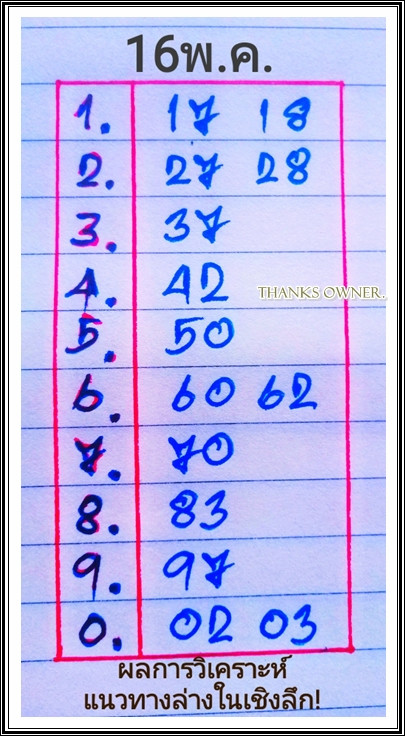 16พ.ค.
1. 17 18
2. 27 28
3. 37
4. 42
THANKS OWNER.
5. 50
6. 60 62
7. 70
8. 83
9. 97
0. 02 03
ผลการวิเคราะห์
แนวทางล่างในเชิงลึก!